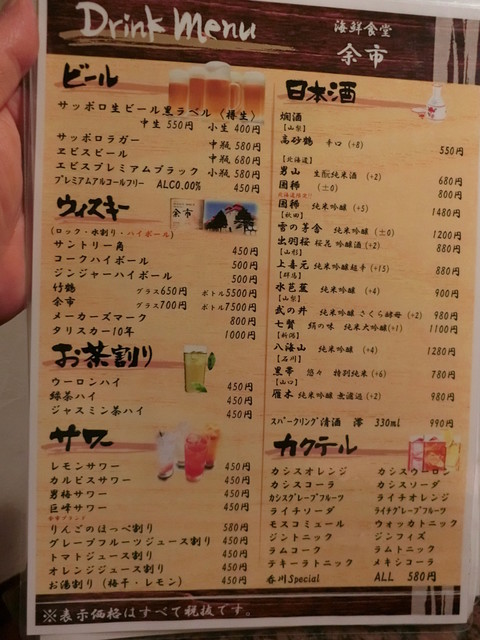 Drink Menu
海鮮食堂
余市
ビール
サッポロ生ビール黒ラベル〈樽生〉
中生 550円 小生 400円
サッポロラガー 中瓶 580円
ヱビスビール 中瓶 680円
エビスプレミアムブラック 小瓶 580円
プレミアムアルコールフリー ALC0.00% 450円
ウィスキー
余市
(ロック・水割り・ハイボール)
サントリー角 450円
コークハイボール 500円
ジンジャーハイボール 500円
竹鶴 グラス650円 ボトル5500円
余市 グラス700円 ボトル7500円
メーカーズマーク 800円
タリスカー10年 1000円
お茶割り
ウーロンハイ 450円
緑茶ハイ 450円
ジャスミン茶ハイ 450円
サワー
レモンサワー 450円
カルピスサワー 450円
男梅サワー 450円
巨峰サワー 450円
りんごのほっぺ割り 580円
グレープフルーツジュース割り 450円
トマトジュース割り 450円
オレンジジュース割り 450円
お湯割り(梅干・レモン) 450円
日本酒
燗酒
【山梨】
高砂鶴 辛口(+8) 550円
【北海道】
男山 生酛純米酒 (+2) 680円
国稀 (±0) 800円
国稀 純米吟醸 (+5) 1480円
【秋田】
雪の茅舎 純米吟醸 (±0) 1200円
出羽桜 桜花 吟醸酒(+2) 880円
【山形】
上喜元 純米吟醸超辛(+15) 880円
【群馬】
水芭蕉 純米吟醸 (+4) 900円
【山梨】
武の井 純米吟醸 さくら酵母 (+2) 980円
七賢 絹の味 純米大吟醸(+1) 1100円
【新潟】
八海山 純米吟醸 (+4) 1280円
【石川】
黒帯 悠々 特別純米(+6) 780円
【山口】
雁木 純米吟醸 無濾過(+2) 980円
スパークリング清酒 澪 330ml 990円
カクテル
カシスオレンジ カシスウーロン
カシスコーラ カシスソーダ
カシスグレープフルーツ ライチオレンジ
ライチソーダ ライチグレープフルーツ
モスコミュール ウォッカトニック
ジントニック ジンフィズ
ラムコーク ラムトニック
テキーラトニック メキシコーラ
香川Special ALL 580円
※表示価格はすべて税抜です。